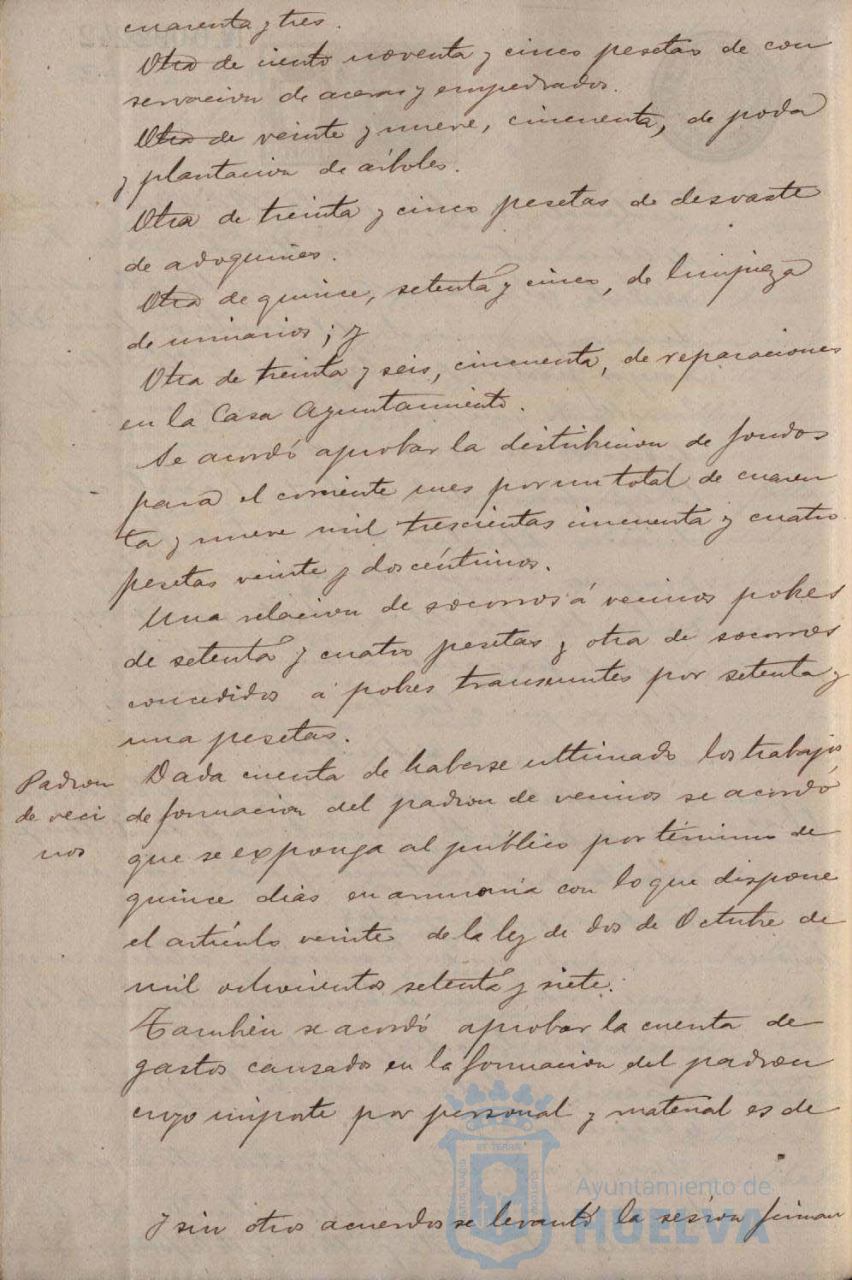 cuarenta y tres.
Otra de ciento noventa y cinco pesetas de con
servacion de aceras y empedrados.
Otra de veinte y nueve, cincuenta, de poda
y plantacion de árboles.
Otra de treinta y cinco pesetas de desvaste
de adoquines.
Otra de quince, setenta y cinco, de limpieza
de urinarios; y
Otra de treinta y seis, cincuenta, de reparaciones
en la Casa Ayuntamiento.
Se acordó aprobar la distribucion de fondos
para el corriente mes por un total de cuaren
ta y nueve mil trescientas cincuenta y cuatro
pesetas veinte y dos céntimos.
Una relacion de socorros á vecinos pobres
de setenta y cuatro pesetas y otra de socorros
concedidos á pobres transeuntes por setenta y
una pesetas.
Padron
de veci
nos
Dada cuenta de haberse ultimado los trabajos
de formacion del padron de vecinos se acordó
que se exponga al público por término de
quince dias en armonia con lo que dispone
el artículo veinte de la ley de dos de Octubre de
mil ochocientos setenta y siete.
Tambien se acordó aprobar la cuenta de
gastos causados en la formacion del padron
cuyo importe por personal y material es de
y sin otros acuerdos se levantó la sesion firman
Ayuntamiento de
HUELVA